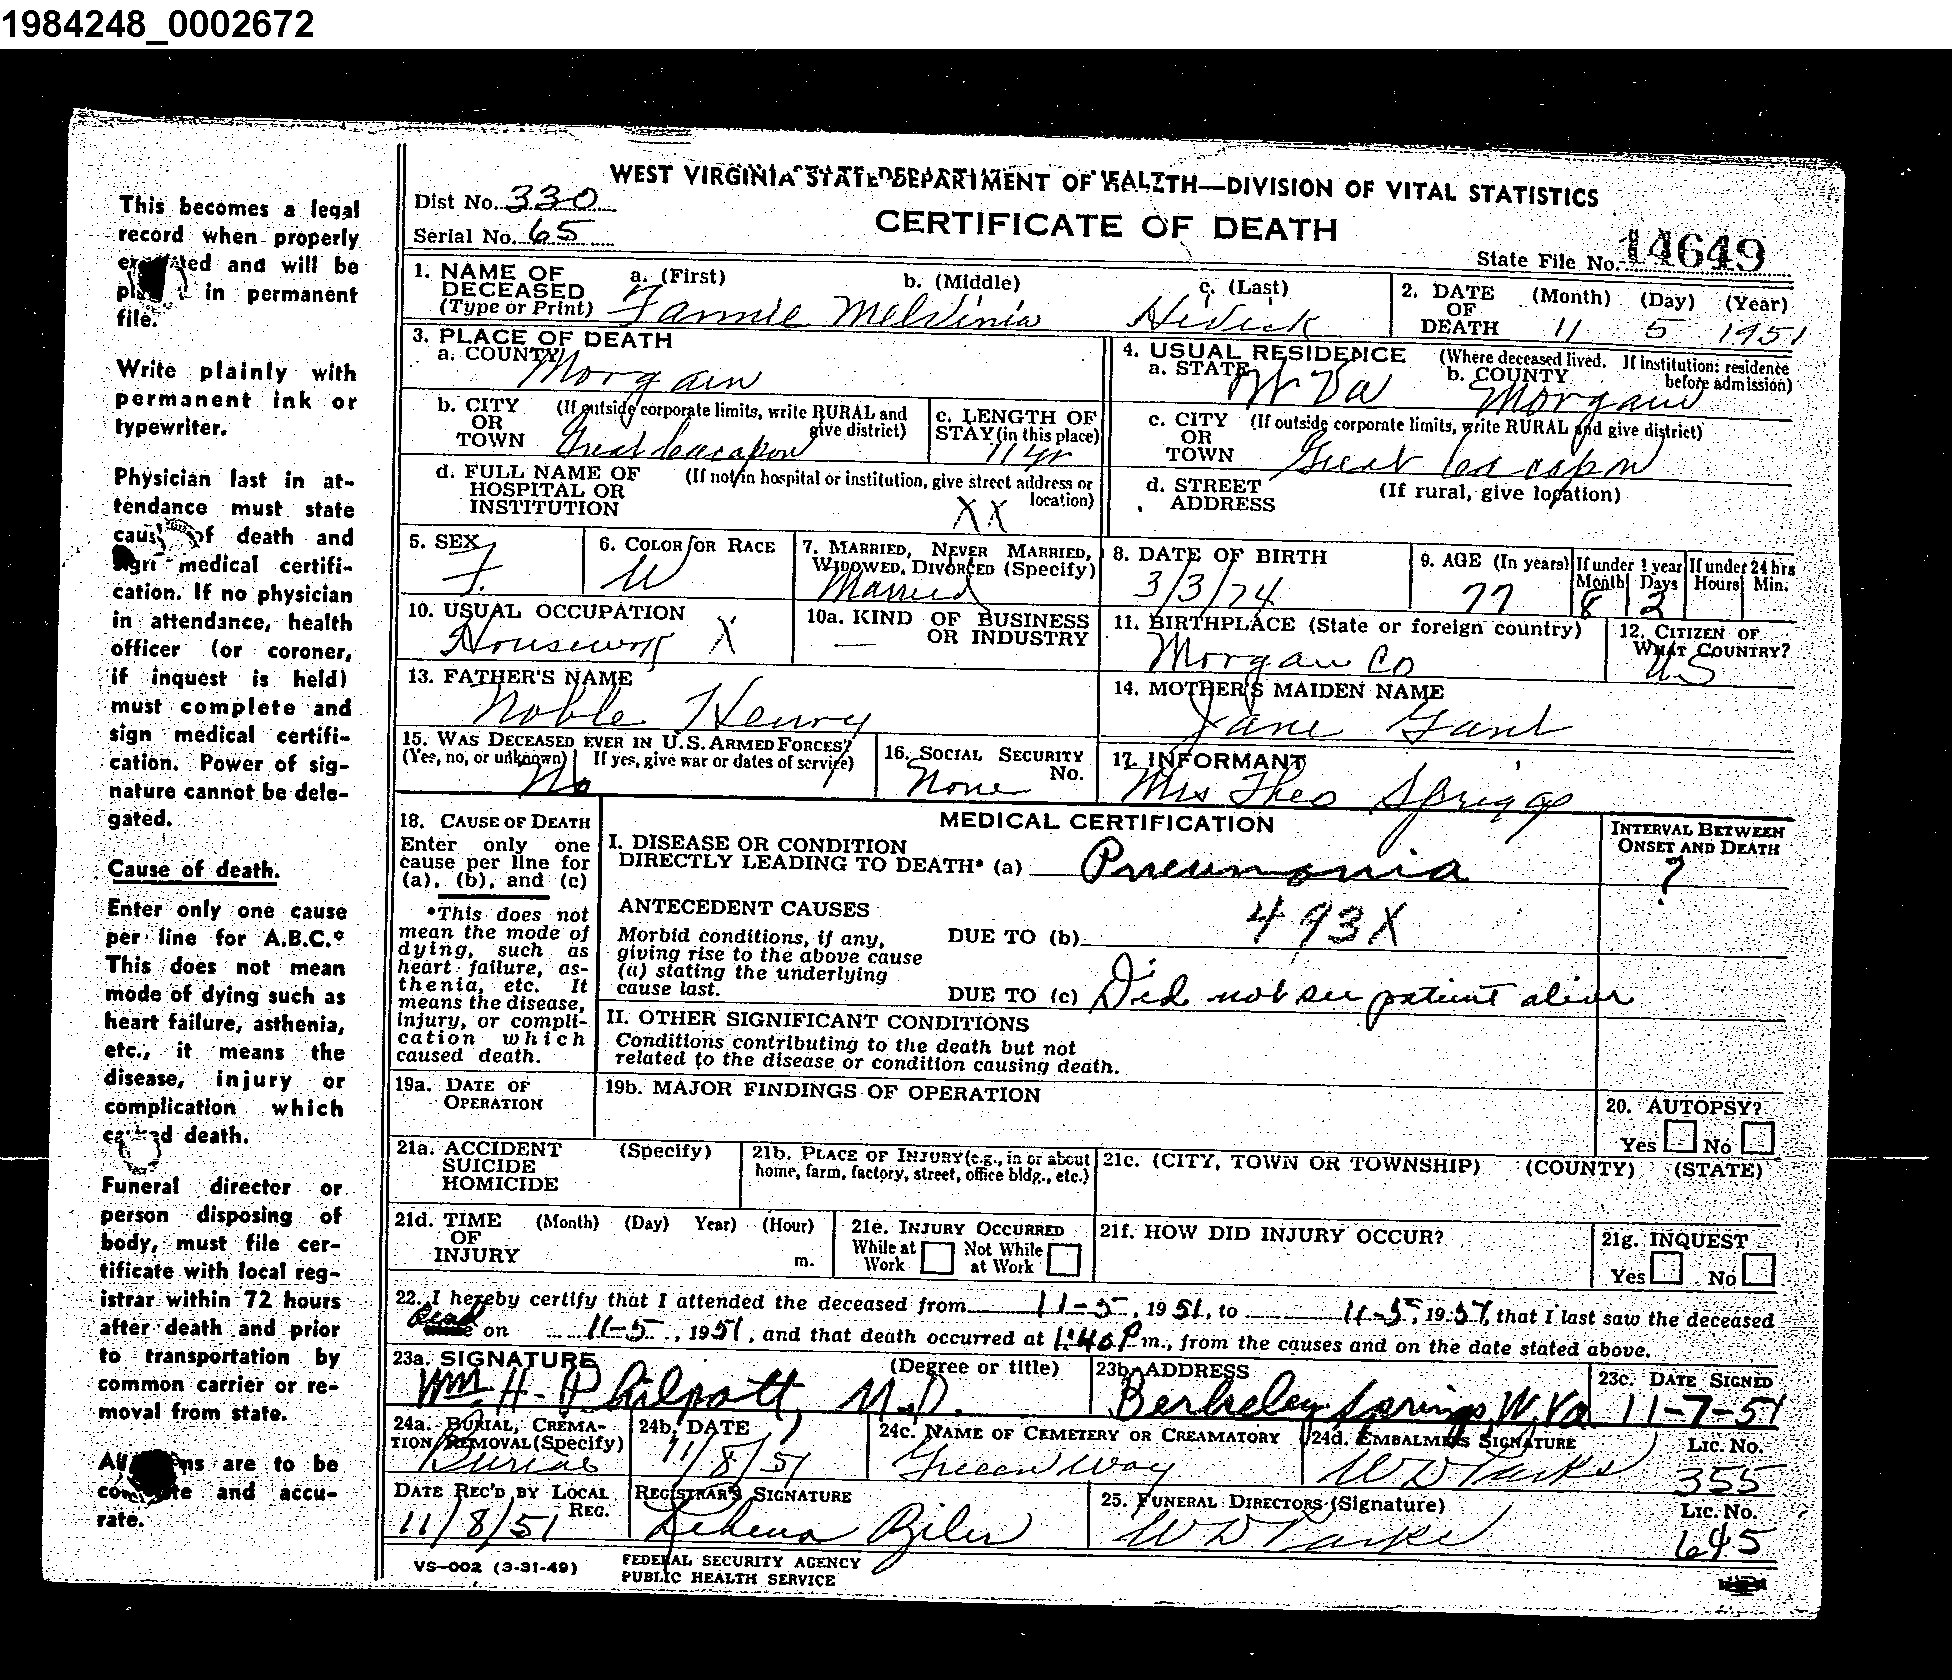 1984248_0002672
WEST VIRGINIA STATE DEPARTMENT OF HEALTH—DIVISION OF VITAL STATISTICS
CERTIFICATE OF DEATH
Dist No. 330
Serial No. 65
State File No. 14649
This becomes a legal
record when properly
executed and will be
placed in permanent
file.
Write plainly with
permanent ink or
typewriter.
Physician last in at-
tendance must state
cause of death and
sign medical certifi-
cation. If no physician
in attendance, health
officer (or coroner,
if inquest is held)
must complete and
sign medical certifi-
cation. Power of sig-
nature cannot be dele-
gated.
Cause of death.
Enter only one cause
per line for A.B.C.*
This does not mean
mode of dying such as
heart failure, asthenia,
etc., it means the
disease, injury or
complication which
caused death.
Funeral director or
person disposing of
body, must file cer-
tificate with local reg-
istrar within 72 hours
after death and prior
to transportation by
common carrier or re-
moval from state.
All items are to be
complete and accu-
rate.
1. NAME OF DECEASED (Type or Print) a. (First) b. (Middle) c. (Last)
Fannie Melvinia Hedeck
2. DATE OF DEATH (Month) (Day) (Year)
11 5 1951
3. PLACE OF DEATH
a. COUNTY Morgan
b. CITY OR TOWN (If outside corporate limits, write RURAL and give district)
Great Cacapon
c. LENGTH OF STAY (in this place)
11 yr
d. FULL NAME OF HOSPITAL OR INSTITUTION (If not in hospital or institution, give street address or location)
XX
4. USUAL RESIDENCE (Where deceased lived. If institution: residence before admission)
a. STATE W Va b. COUNTY Morgan
c. CITY OR TOWN (If outside corporate limits, write RURAL and give district)
Great Cacapon
d. STREET ADDRESS (If rural, give location)
5. SEX F.
6. COLOR OR RACE W
7. MARRIED, NEVER MARRIED, WIDOWED, DIVORCED (Specify) Married
8. DATE OF BIRTH 3/3/74
9. AGE (In years) 77 If under 1 year Month 8 Days 2 If under 24 hrs Hours Min.
10. USUAL OCCUPATION Housework X
10a. KIND OF BUSINESS OR INDUSTRY —
11. BIRTHPLACE (State or foreign country) Morgan Co
12. CITIZEN OF WHAT COUNTRY? U S
13. FATHER'S NAME Noble Henry
14. MOTHER'S MAIDEN NAME Jane Gant
15. WAS DECEASED EVER IN U.S. ARMED FORCES?
(Yes, no, or unknown) If yes, give war or dates of service)
No
16. SOCIAL SECURITY No. None
17. INFORMANT Mrs Theo Spriggs
MEDICAL CERTIFICATION
18. CAUSE OF DEATH
Enter only one
cause per line for
(a), (b), and (c)
*This does not
mean the mode of
dying, such as
heart failure, as-
thenia, etc. It
means the disease,
injury, or compli-
cation which
caused death.
I. DISEASE OR CONDITION
DIRECTLY LEADING TO DEATH* (a) Pneumonia
INTERVAL BETWEEN ONSET AND DEATH
?
ANTECEDENT CAUSES
Morbid conditions, if any,
giving rise to the above cause
(a) stating the underlying
cause last.
DUE TO (b) 493X
DUE TO (c) Did not see patient alive
II. OTHER SIGNIFICANT CONDITIONS
Conditions contributing to the death but not
related to the disease or condition causing death.
19a. DATE OF OPERATION
19b. MAJOR FINDINGS OF OPERATION
20. AUTOPSY?
Yes No
21a. ACCIDENT SUICIDE HOMICIDE (Specify)
21b. PLACE OF INJURY (e.g., in or about home, farm, factory, street, office bldg., etc.)
21c. (CITY, TOWN OR TOWNSHIP) (COUNTY) (STATE)
21d. TIME OF INJURY (Month) (Day) Year) (Hour) m.
21e. INJURY OCCURRED
While at Work Not While at Work
21f. HOW DID INJURY OCCUR?
21g. INQUEST
Yes No
22. I hereby certify that I attended the deceased from 11-5, 1951, to 11-5, 1951, that I last saw the deceased
Dead on 11-5, 1951, and that death occurred at 1:40 P m., from the causes and on the date stated above.
23a. SIGNATURE (Degree or title)
Wm H. Philpott, M.D.
23b. ADDRESS
Berkeley Springs, W. Va
23c. DATE SIGNED
11-7-51
24a. BURIAL, CREMATION, REMOVAL (Specify)
Burial
24b. DATE
11/8/51
24c. NAME OF CEMETERY OR CREAMATORY
Greenway
24d. EMBALMERS SIGNATURE Lic. No.
W D Parke 355
DATE REC'D BY LOCAL REG.
11/8/51
REGISTRAR'S SIGNATURE
25. FUNERAL DIRECTORS (Signature) Lic. No.
W D Parke 645
VS-002 (3-31-49)
FEDERAL SECURITY AGENCY
PUBLIC HEALTH SERVICE